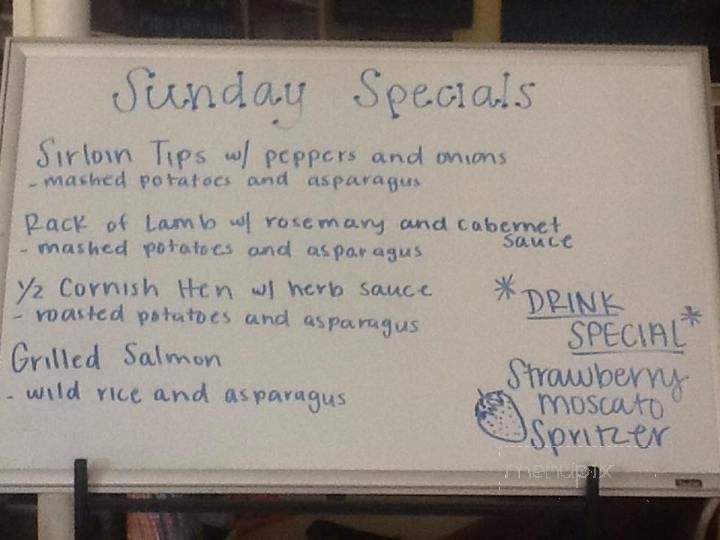 Sunday Specials
Sirloin Tips w/ peppers and onions
- mashed potatoes and asparagus
Rack of Lamb w/ rosemary and cabernet
sauce
- mashed potatoes and asparagus
1/2 Cornish Hen w/ herb sauce
- roasted potatoes and asparagus
Grilled Salmon
- wild rice and asparagus
* DRINK
SPECIAL *
Strawberry
moscato
Spritzer
menupix